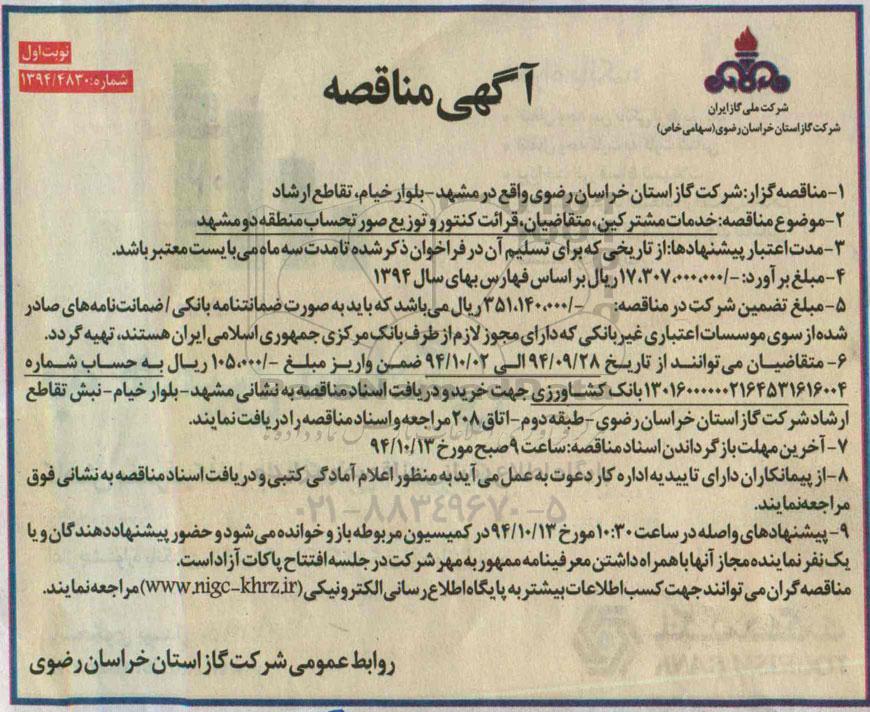 نوبت اول
شماره: ۱۳۹۴/۴۸۳۰
آگهی مناقصه
شرکت ملی گاز ایران
شرکت گاز استان خراسان رضوی (سهامی خاص)
۱-مناقصه گزار: شرکت گاز استان خراسان رضوی واقع در مشهد -بلوار خیام، تقاطع ارشاد
۲-موضوع مناقصه: خدمات مشترکین، متقاضیان، قرائت کنتور و توزیع صورتحساب منطقه دو مشهد
۳-مدت اعتبار پیشنهادها: از تاریخی که برای تسلیم آن در فراخوان ذکر شده تا مدت سه ماه می بایست معتبر باشد.
۴-مبلغ برآورد: -/۱۷،۳۰۷،۰۰۰،۰۰۰ ریال بر اساس فهارس بهای سال ۱۳۹۴
۵-مبلغ تضمین شرکت در مناقصه: -/۳۵۱،۱۴۰،۰۰۰ ریال می‌باشد که باید به صورت ضمانتنامه بانکی / ضمانت‌نامه‌های صادر
شده از سوی موسسات اعتباری غیر بانکی که دارای مجوز لازم از طرف بانک مرکزی جمهوری اسلامی ایران هستند، تهیه گردد.
۶- متقاضیان می‌توانند از تاریخ ۹۴/۰۹/۲۸ الی ۹۴/۱۰/۰۲ ضمن واریز مبلغ -/۱۰۵،۰۰۰ ریال به حساب شماره
۱۳۰۱۶۰۰۰۰۰۰۲۱۶۴۵۳۱۶۱۶۰۰۴ بانک کشاورزی جهت خرید و دریافت اسناد مناقصه به نشانی مشهد -بلوار خیام-نبش تقاطع
ارشاد شرکت گاز استان خراسان رضوی -طبقه دوم -اتاق ۲۰۸ مراجعه و اسناد مناقصه را دریافت نمایند.
۷- آخرین مهلت بازگرداندن اسناد مناقصه: ساعت ۹ صبح مورخ ۹۴/۱۰/۱۳
۸-از پیمانکاران دارای تاییدیه اداره کار دعوت به عمل می آید به منظور اعلام آمادگی کتبی و دریافت اسناد مناقصه به نشانی فوق
مراجعه نمایند.
۹- پیشنهادهای واصله در ساعت ۱۰:۳۰ مورخ ۹۴/۱۰/۱۳ در کمیسیون مربوطه باز و خوانده می‌شود و حضور پیشنهاد دهندگان و یا
یک نفر نماینده مجاز آنها با همراه داشتن معرفینامه ممهور به مهر شرکت در جلسه افتتاح پاکات آزاد است.
مناقصه گران می توانند جهت کسب اطلاعات بیشتر به پایگاه اطلاع رسانی الکترونیکی (www.nigc-khrz.ir) مراجعه نمایند.
روابط عمومی شرکت گاز استان خراسان رضوی
۰۲۱-۸۸۳۴۹۶۷۰-۵